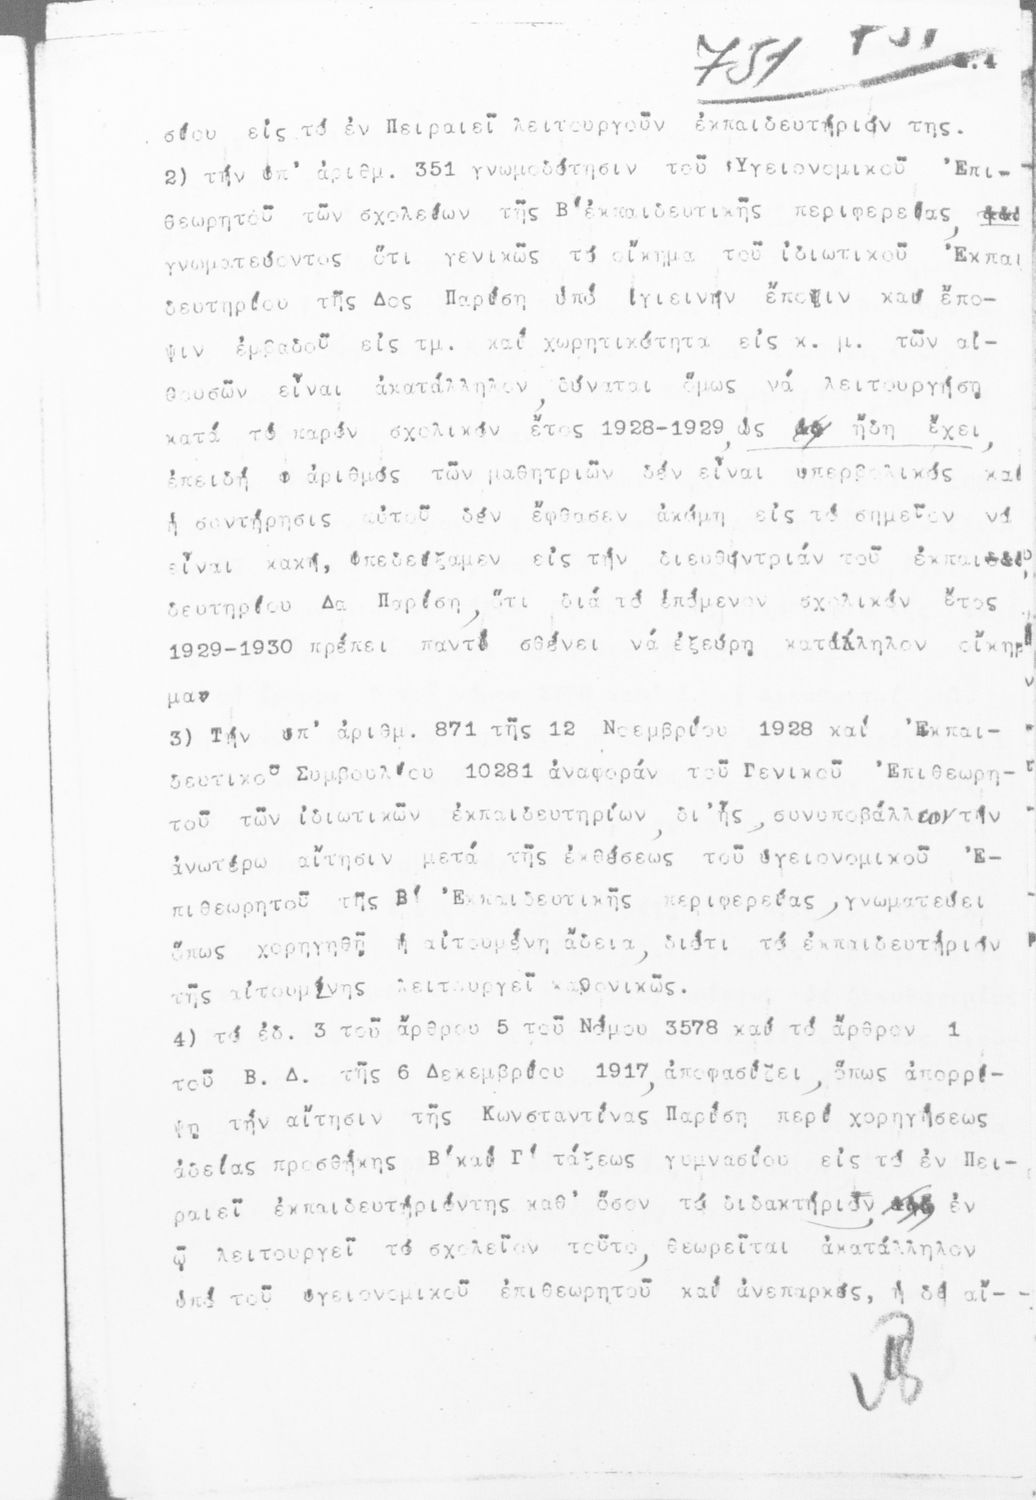 751 751
.4
σίου εἰς τό ἐν Πειραιεῖ λειτουργοῦν ἐκπαιδευτήριόν της.
2) τήν ὑπ' ἀριθμ. 351 γνωμοδότησιν τοῦ Ὑγειονομικοῦ Ἐπι-
θεωρητοῦ τῶν σχολείων τῆς Β' ἐκπαιδευτικῆς περιφερείας,
γνωματεύοντος ὅτι γενικῶς τό οἴκημα τοῦ ἰδιωτικοῦ Ἐκπαι
δευτηρίου τῆς Δος Παρίση ὑπό ὑγιεινήν ἔποψιν καί ἔπο-
ψιν ἐμβαδοῦ εἰς τμ. καί χωρητικότητα εἰς κ. μ. τῶν αἰ-
θουσῶν εἶναι ἀκατάλληλον, δύναται ὅμως νά λειτουργήσῃ
κατά τό παρόν σχολικόν ἔτος 1928-1929, ὡς ἤδη ἔχει,
ἐπειδή ὁ ἀριθμός τῶν μαθητριῶν δέν εἶναι ὑπερβολικός καί
ἡ συντήρησις αὐτοῦ δέν ἔφθασεν ἀκόμη εἰς τό σημεῖον νά
εἶναι κακή, ὑπεδείξαμεν εἰς τήν διευθύντριάν τοῦ ἐκπαι
δευτηρίου Δα Παρίση, ὅτι διά τό ἑπόμενον σχολικόν ἔτος
1929-1930 πρέπει παντί σθένει νά ἐξεύρῃ κατάλληλον οἴκη
μα
3) Τήν ὑπ' ἀριθμ. 871 τῆς 12 Νοεμβρίου 1928 καί Ἐκπαι-
δευτικοῦ Συμβουλίου 10281 ἀναφοράν τοῦ Γενικοῦ Ἐπιθεωρη-
τοῦ τῶν ἰδιωτικῶν ἐκπαιδευτηρίων, δι' ἧς, συνυποβάλλων τήν
ἀνωτέρω αἴτησιν μετά τῆς ἐκθέσεως τοῦ ὑγειονομικοῦ Ἐ-
πιθεωρητοῦ τῆς Β' Ἐκπαιδευτικῆς περιφερείας, γνωματεύει
ὅπως χορηγηθῇ ἡ αἰτουμένη ἄδεια, διότι τό ἐκπαιδευτήριόν
τῆς αἰτουμένης λειτουργεῖ κανονικῶς.
4) τό ἐδ. 3 τοῦ ἄρθρου 5 τοῦ Νόμου 3578 καί τό ἄρθρον 1
τοῦ Β. Δ. τῆς 6 Δεκεμβρίου 1917, ἀποφασίζει, ὅπως ἀπορρί-
ψῃ τήν αἴτησιν τῆς Κωνσταντίνας Παρίση περί χορηγήσεως
ἀδείας προσθήκης Β' καί Γ' τάξεως γυμνασίου εἰς τό ἐν Πει-
ραιεῖ ἐκπαιδευτήριόντης καθ' ὅσον τό διδακτήριον, ἐν
ᾧ λειτουργεῖ τό σχολεῖον τοῦτο, θεωρεῖται ἀκατάλληλον
ὑπό τοῦ ὑγειονομικοῦ ἐπιθεωρητοῦ καί ἀνεπαρκές, ἡ δέ αἴ-